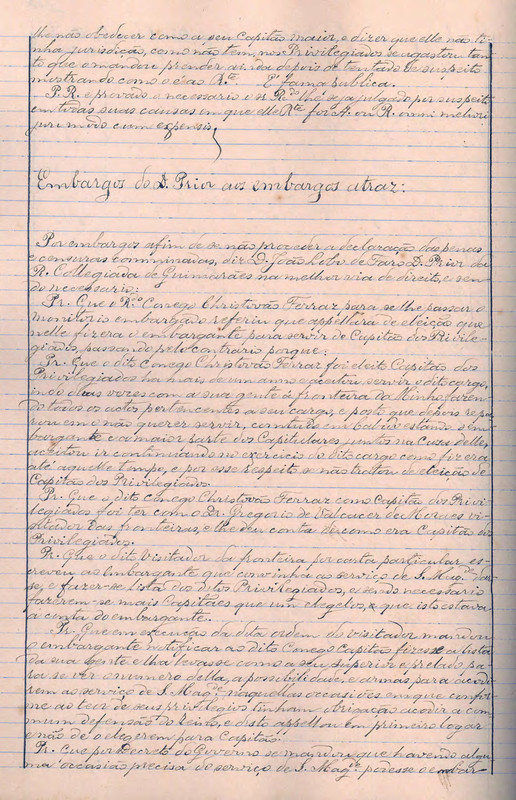 lhe não obedecer como a seu Capitão maior, e dizer que elle não ti-
nha jurisdição, como não tem, nos Privilegiados se agastou tan-
to que o mandou prender ainda depois de tentado de suspeito
mostrando como o é ao R.te É fama publica.
P. R. e provado o necessario o sr. R.do lhe seja julgado por suspeito
em todas suas causas em que elle R.te for A. ou R. omni meliori
juris modo cum expensis
Embargos do D. Prior aos embargos atraz:
Por embargos afim de se não proceder a declaração das penas
e censuras comminadas, diz D. João Lobo de Faro D. Prior da
R. Collegiada de Guimarães na melhor via de direito, e sen-
do necessario:
Pr. Que o R.do Conego Christovão Ferraz para se lhe passar o
monitorio embargado referiu que appellára da eleição que
nelle fizera o embargante para servir de Capitão dos Privile-
giados, passando pelo contrario porque:
Pr. Que o dito Conego Christovão Ferraz foi eleito Capitão dos
Privilegiados ha mais de um anno e aceitou servir o dito cargo,
indo duas vezes com a sua gente á fronteira do Minho fazen-
do todos os actos pertencentes a seu cargo, e posto que depois repa-
rou em o não querer servir, comtudo em estando o em-
bargante e a maior parte dos Capitulares juntos na Casa delle,
aceitou ir continuando no exercicio do dito cargo como fizera
até aquelle tempo, e por esse respeito se não tratou de eleição de
Capitão dos Privilegiados.
Pr. Que o dito Conego Christovão Ferraz como Capitão dos Privi-
legiados foi ter com o Dr. Gregorio de Valcacer de Moraes vi-
sitador das fronteiras, e lhe deu conta de como era Capitão dos
Privilegiados.
Pr. Que o dito Visitador da fronteira por carta particular, es-
creveu ao Embargante que convinha ao serviço de S. Mag.de
se, e fazer-se lista dos ditos Privilegiados, e sendo necessario
fazerem-se mais Capitães que um elegelos, e que isto estava
á conta do embargante.
Pr. Que em execução da dita ordem do visitador mandou
o embargante notificar ao dito Conego Capitão fizesse a lista
da sua gente e lha levasse como a seu superior e prelado pa-
ra se ver o numero della, a possibilidade, e armas para acodi-
rem ao serviço de S. Mag.de naquellas occasiões em que confor-
me ao teor de seus privilegios tinham obrigação acodir a com-
mum defensão do Reino, e disto appellou em primeiro logar
e não de o elegerem para Capitão.
Pr. Que por Decreto do Governo se mandou que havendo algu-
ma occasião precisa do serviço de S. Mag.de podesse o embar-